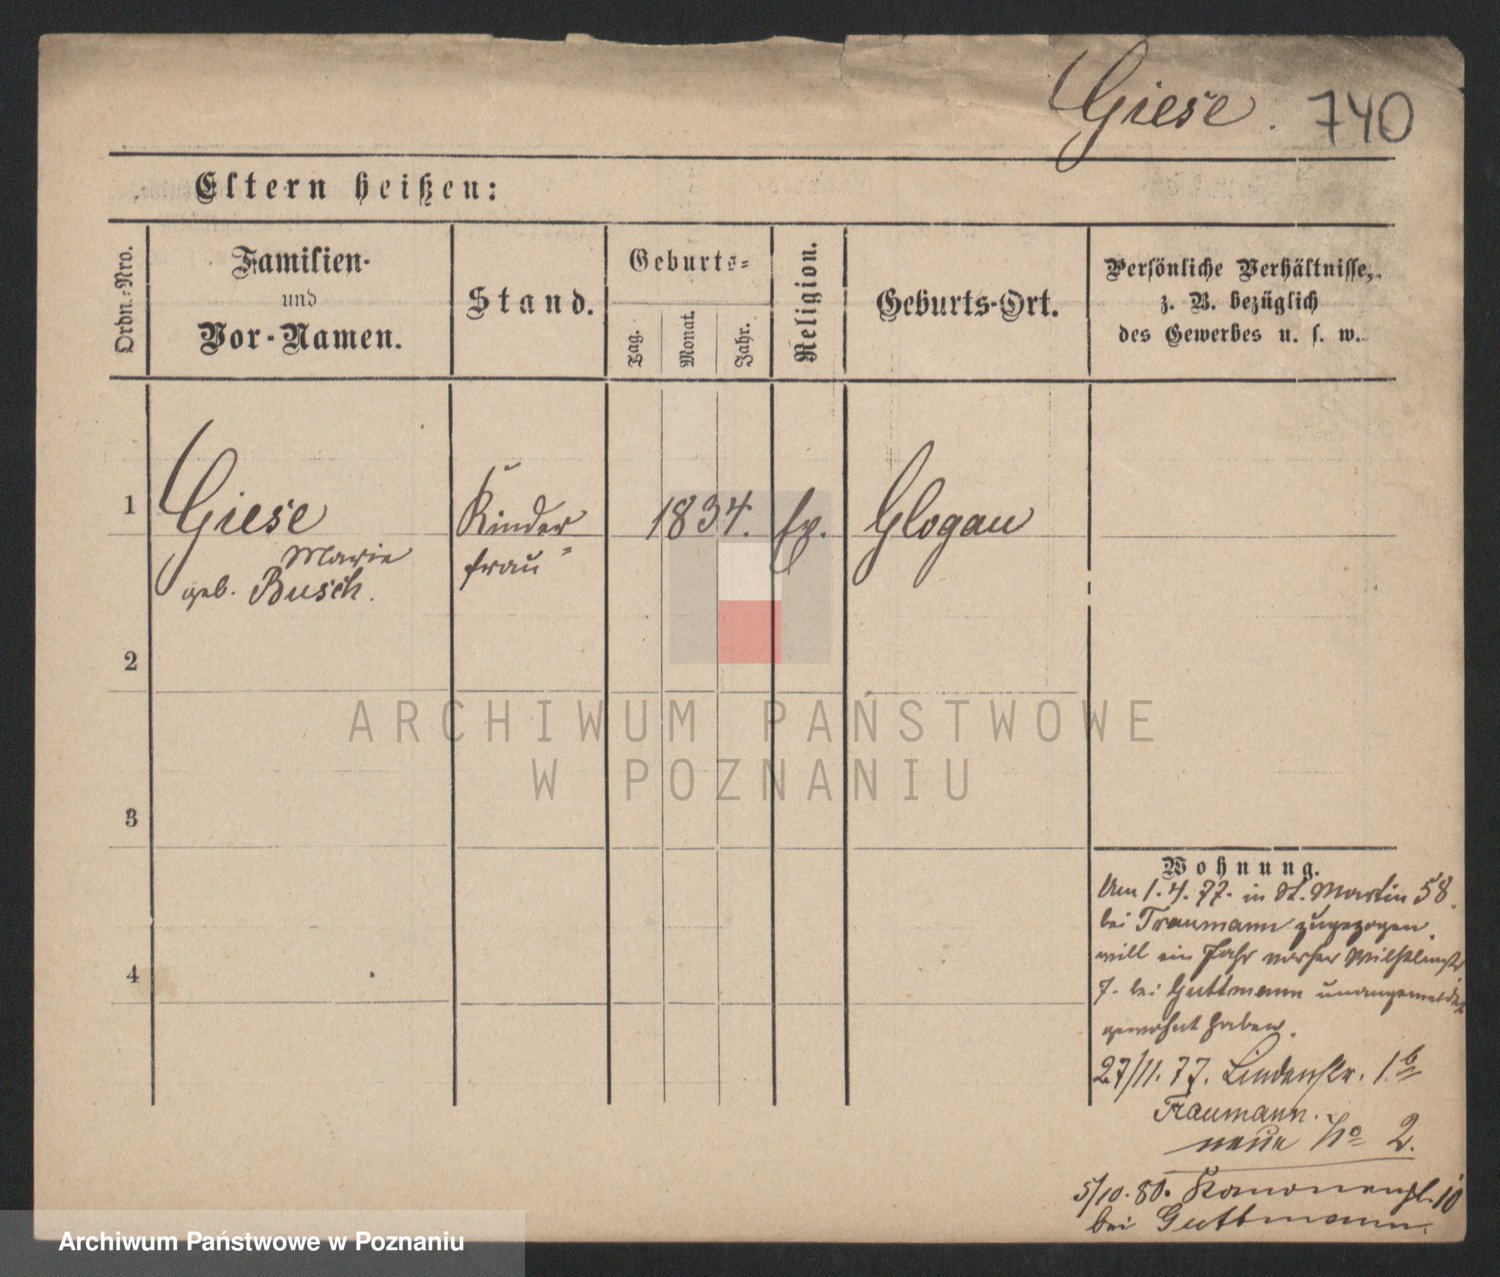 Giese. 740
Eltern heißen:
Ordn.-Nro.
Familien-
und
Vor-Namen.
Stand.
Geburts-
Tag.
Monat.
Jahr.
Religion.
Geburts-Ort.
Persönliche Verhältnisse,
z. B. bezüglich
des Gewerbes u. s. w.
1 Giese Kinder 1834. ev. Glogau
Marie frau
geb. Busch.
2
3
4
Wohnung.
Um 1.4.77. in St. Martin 58.
bei Traumann zugezogen,
will ein Jahr vorher Wilhelmstr
7. bei Guttmann unangemeldet
gewohnt haben.
27/11.77. Lindenstr. 1.b
Traumann.
neue No 2.
5/10.80. Kanonenpl. 10
bei Guttmann.
ARCHIWUM PAŃSTWOWE
W POZNANIU
Archiwum Państwowe w Poznaniu